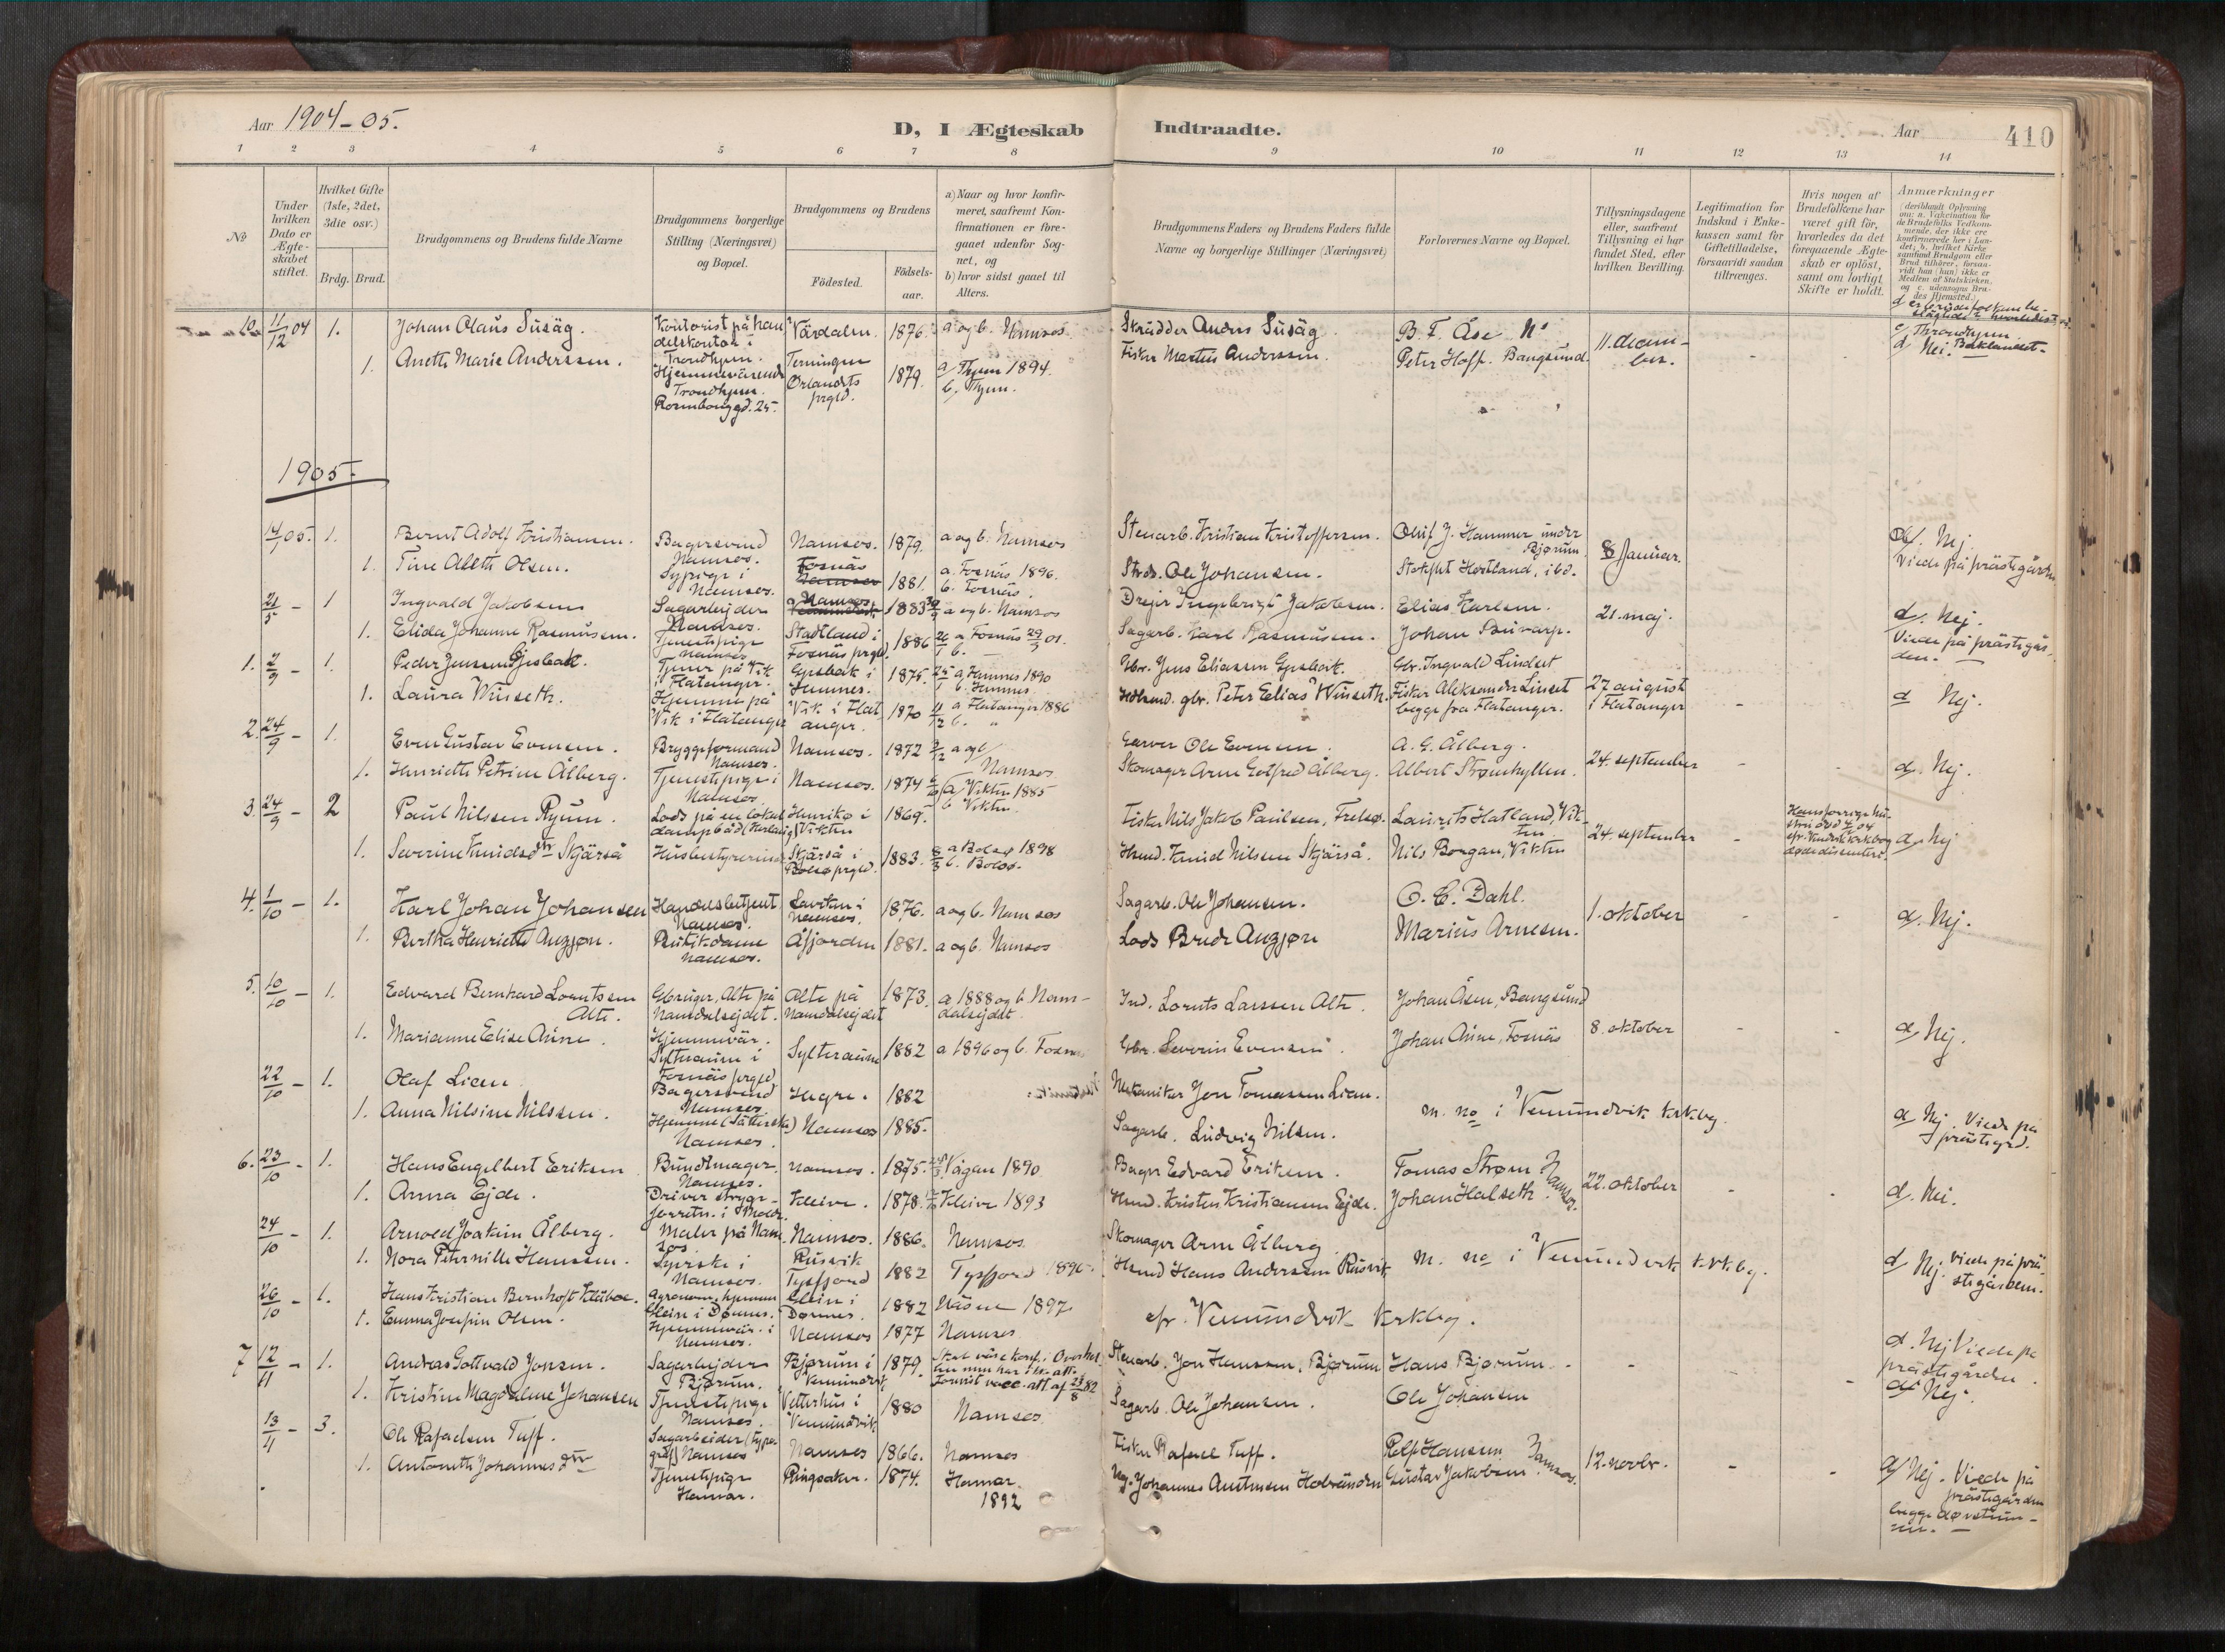 Aar 1904-05.
D, I Ægteskab
Indtraadte.
Aar
410
1 2 3 4 5 6 7 8 9 10 11 12 13 14
No
Under hvilken Dato er Ægte-skabet stiftet.
Hvilket Gifte (1ste, 2det, 3die osv.)
Brdg. Brud.
Brudgommens og Brudens fulde Navne
Brudgommens borgerlige Stilling (Næringsvei) og Bopæl.
Brudgommens og Brudens
Fødested.
Fødsels-aar.
a) Naar og hvor konfir-meret, saafremt Kon-firmationen er fore-gaaet udenfor Sog-net, og
b) hvor sidst gaaet til Alters.
Brudgommens Faders og Brudens Faders fulde Navne og borgerlige Stillinger (Næringsvei)
Forlovernes Navne og Bopæl.
Tillysningsdagene eller, saafremt Tillysning ei har fundet Sted, efter hvilken Bevilling.
Legitimation for Indskud i Enke-kassen samt for Giftetilladelse, forsaavidt saadan tiltrænges.
Hvis nogen af Brudefolkene har været gift før, hvorledes da det foregaaende Ægte-skab er opløst, samt om lovligt Skifte er holdt.
Anmærkninger
(deriblandt Oplysning om: a. Vakcination for de Brudefolks Vedkom-mende, der ikke ere konfirmerede her i Lan-det; b. hvilket Kirke-samfund Brudgom eller Brud tilhører, forsaa-vidt han (hun) ikke er Medlem af Statskirken, og c. udensogns Bru-des Hjemsted.)
10 11/12 04 1. Johan Olaus Susäg. Kontorist på han delskontor i Trondhjem. Värdalen. 1876. a og b. Namsos Skrädder Anders Susäg B. F. Åse 11 decem-ber.
1. Aneth Marie Anderssen. Hjemmeværende Trondhjem. Ørlandets prgld. 1879. a/ Thjem 1894. b. Thjem. Fisker Martin Anderssen. Peter Hoff. Bangsund. c/ Throndhjem Baklandet d Nei.
1905.
14/1 05. 1. Bernt Adolf Kristiansen. Bagersvend Namsos. Namsos. 1879. a og b. Namsos Stenarb. Kristian Kristoffersen. Oluf J. Hammer under Bjørum. 8 Januar. d/. Nej. Viede på prästegården
1. Tine Aleth Olsen. Sypige i Namsos. Fosnäs 1881. a. Fosnäs 1896. b. Fosnäs. Ole Johansen. Hortland, ibd.
21/5 - 1 Ingvald Jakobsen Sagarbejder Namsos. Namsos 1883 a og b. Namsos Drejer Ingebrigt Jakobsen. Elias Karlsen. 21. maj. d/. Nej.
1. Elida Johanne Rasmussen. Tjenestepige Namsos Stadtland i Fosnäs prgld. 1886 a Fosnäs 01. b. Sagarb. Karl Rasmussen. Johan Buvarp. Viede på prästegår-den.
1. 2/9 - 1. Peder Jenssen Gjesbak. Tjener på Vik i Flatanger. Gjesbak i Hemnes. 1875. a, Hemnes 1890 b. Hemnes Gbr. Jens Eliassen Gjesbak. Gbr. Ingvald Lindset 27 august i Flatanger
1. Laura Wiiseth. Hjemme på Vik i Flatanger Vik i Flat anger. 1870 a Flatanger 1886 b. " gbr. Peter Elias Wiiseth. Fisker Aleksander Linset begge fra Flatanger. d Nej.
2. 24/9 - 1. Even Gustav Evensen. Bryggeformand Namsos. Namsos. 1872 a og b/ Namsos Garver Ole Evensen. A. G. Ålberg. 24. september - - d/. Nej.
1. Henriette Petrine Ålberg. Tjenestepige i Namsos Namsos. 1874 a/ Vikten 1885 b Vikten. Skomager Arne Gotfred Ålberg. Albert Strømhyllen.
3. 24/9 - 2 Paul Nilssen Ryum. Lods på en lokal dampbåd Vikten 1869. Fisker Nils Jakob Paulsen, Frelsø. Laurits Hatland, Vik-ten 24. september -
1. Severine Knudsdtr Skjärså Husbestyrerinde Skjärså i Bolsø prgld. 1883. a Bolsø 1898 b. Bolsø. Husmd. Knud Nilssen Skjärså. Nils Borgan, Vikten d Nej
4. 1/10 - 1. Karl Johan Johansen Handelsbetjent Namsos. Namsos. 1876. a og b. Namsos Sagarb. Ole Johansen. O. C. Dahl. 1. oktober - - d. Nej.
1. Bertha Henriette Angjøn. Butikdame Namsos. Åfjorden 1881. a og b. Namsos Lods Angjøn Marius Arnesen.
5. 10/10 - 1. Edvard Bernhard Lorntsen Alte. Gbruger, Alte på Namdalsejdet. Alte på Namdalsejdet 1873. a 1888 og b Nam-dalsejdet Ind. Lornts Larssen Alte. Johan Åsen, Bangsund 8. oktober - - d/ Nej.
1. Marianne Elise Aune. Hjemmevär. Sylteraune i Fosnäs prgld Sylteraune 1882 a 1896 og b. Fosnes Gbr. Severin Evensen. Johan Aune, Fosnäs
22/10 - 1. Olaf Lien. Bagersvend Namsos Hegre. 1882 Mekaniker Jon Tomassen Lien.
1. Anna Nilsine Nilssen. Hjemme Namsos. Namsos 1885. Sagarb. Ludvig Nilsen. m. no i Vemundvik krkbg. d Nej. Viede på prästegrd.
6. 23/10 - 1. Hans Engelbert Eriksen Bundtmager. Namsos. Namsos. 1875. Vågan 1890 Bager Edvard Eriksen. Tomas Strøm Namsos. 22. oktober - - d. Nei.
1. Anna Ejde. Driver stryge-forretn. i Molde. Kleive. 1878. Kleive 1893 Husmd. Kristen Kristiansen Ejde. Johan Halseth.
24/10 - 1. Arnold Joakim Ålberg. Maler på Nam-sos Namsos. 1886. Namsos Skomager Arne Ålberg.
1. Nora Peternille Hanssen. Syerske i Namsos. Rusvik Tysfjord 1882 Tysfjord 1896. Husmd Hans Anderssen Rusvik m. no i Vemundvik krkbg. d Nej. Viede på prä-stegården.
26/10 - 1. Hans Kristian Bernhoft Klæboe. Agronom, hjemme Glein i Dønnes. Glein i Dønnes. 1882 Näsne 1897 efr. Vemundvik krkbg.
1. Emma Josefin Olsen. Hjemmevär. i Namsos. Namsos 1877 Namsos d. Nej Viede på prästegården.
7 12/11 - 1. Andreas Gottvald Jonsen. Sagarbejder Bjørum. Bjørum i Vemundvik 1879. Stenarb. Jon Hanssen, Bjørum Hans Bjørum - -
1. Kristine Magdalene Johansen Tjenestepige Namsos. Vetterhus i Vemundvik 1880 Namsos Sagarb. Ole Johansen. Ole Johansen d/ Nej.
13/11 - 3. Ole Rafaelsen Tuff. Sagarbeider (typo-graf) Namsos Namsos 1866. Namsos Fisker Rafael Tuff. Rolf Hansen Namsos. 12. novbr. - -
1. Antoneth Johannesdtr Tjenestepige Hamar. Ringsaker. 1874. Hamar. 1892 Johannes Gustav Jakobsen d/ Nej. Viede på prästegården begge døvstum-me.